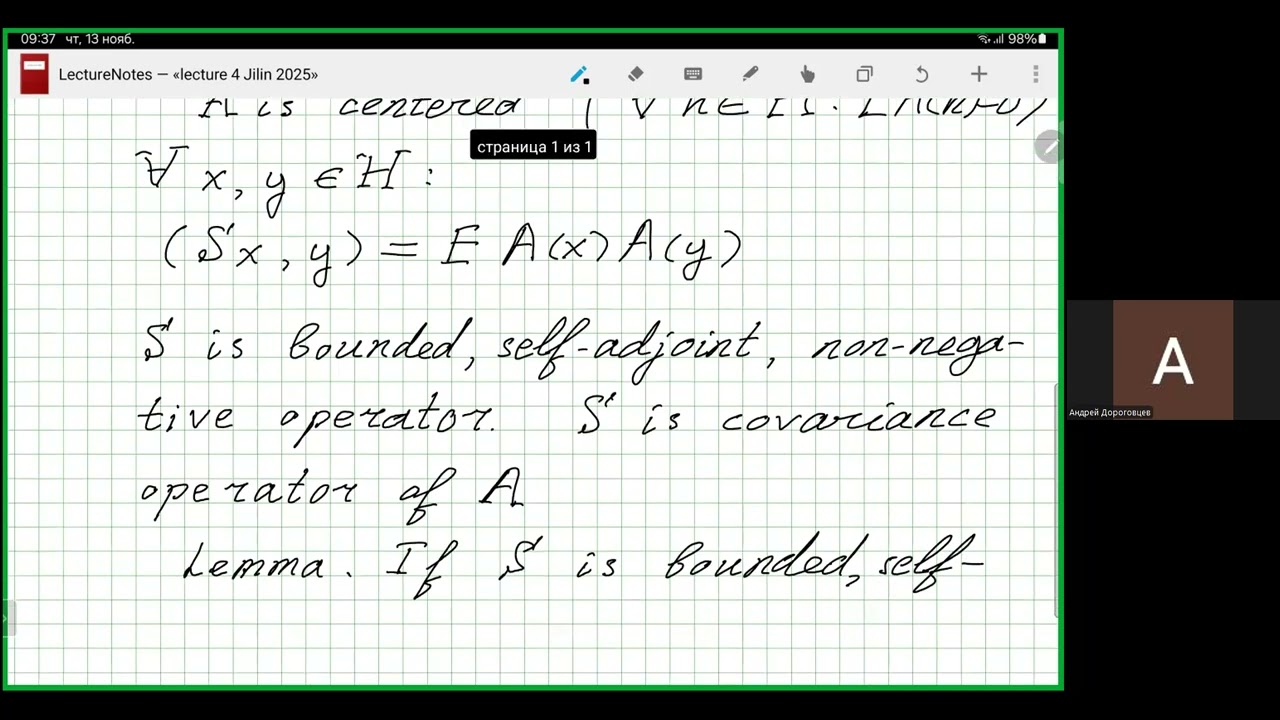 09:37 чт, 13 нояб. 98%
LectureNotes — «lecture 4 Jilin 2025»
A is centered ( ∀ h ∈ H : E A(h)=0)
страница 1 из 1
∀ x, y ∈ H :
(Sx, y) = E A(x) A(y)
S is bounded, self-adjoint, non-nega-
tive operator. S is covariance
operator of A
Lemma. If S is bounded, self-
A
Андрей Дороговцев